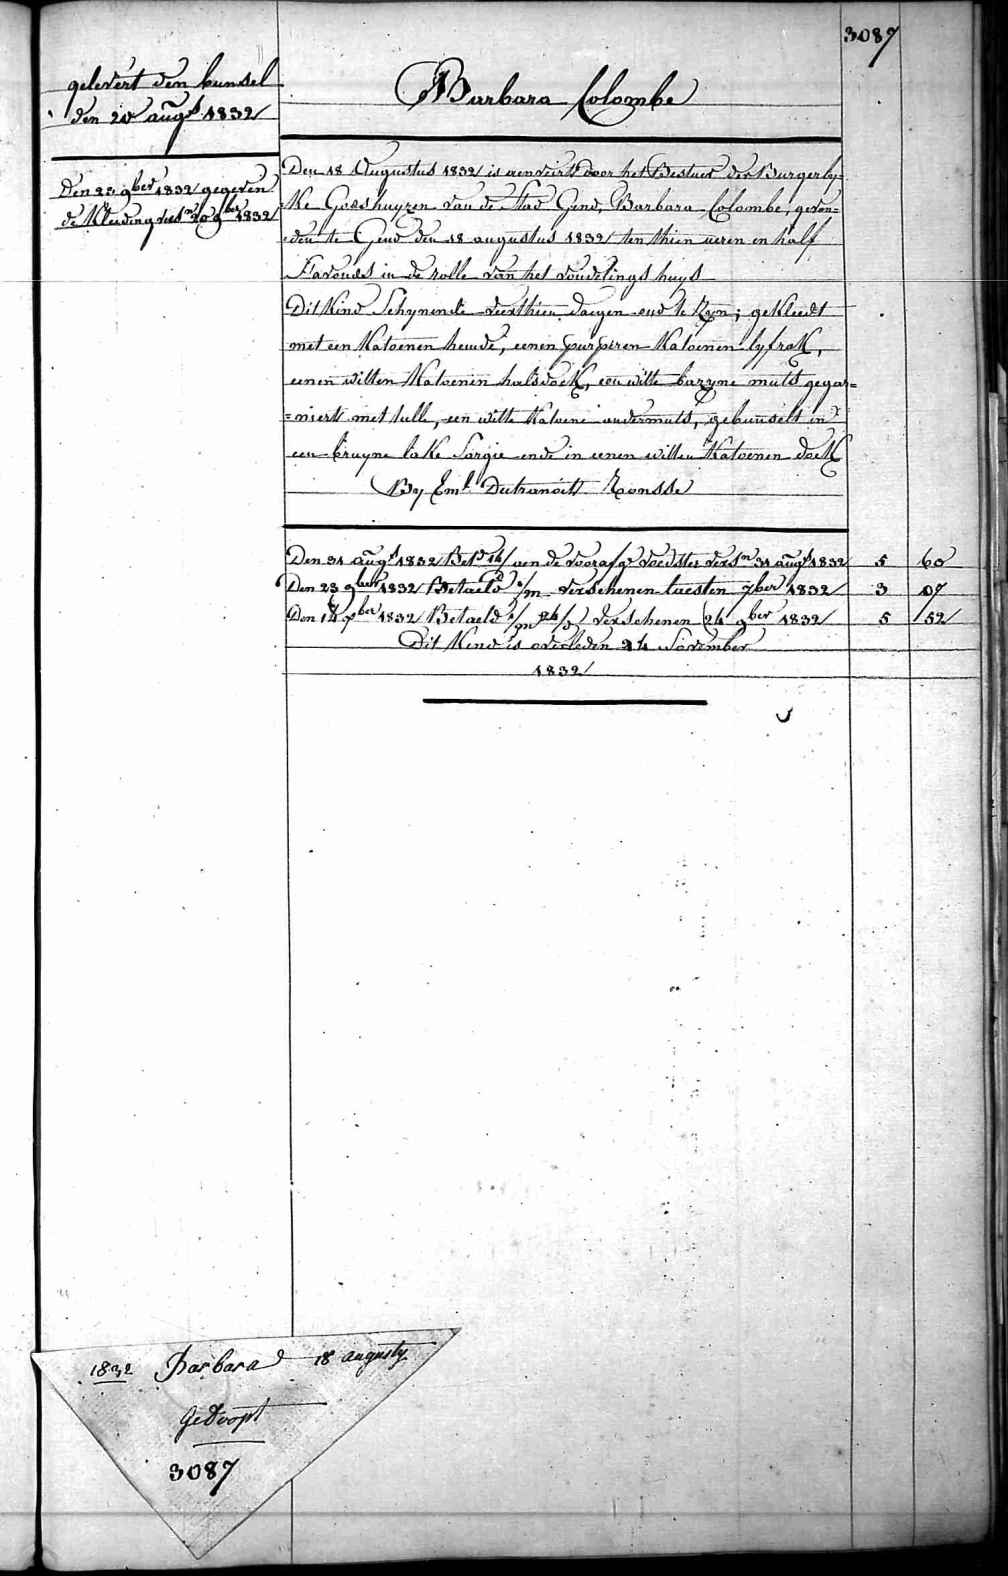 3087
gelevert den bunsel
den 20 augt 1832
Barbara Colombe
Den 23 9ber 1832 gegeven
de Kleeding vers 20 9ber 1832
Den 18 Augustus 1832 is aenveird door het Bestuer der Burgerly-
ke Godshuyzen van de Stad Gend, Barbara Colombe, gevon=
den te Gend den 18 augustus 1832 ten thien ueren en half
s'avonds in de rolle van het vondelings huys
Dit Kind Schynende veerthien daegen oud te Zyn; gekleedt
met een Katoenen hemde, eenen purperen Katoenen lyfrok,
eenen witten Katoenen halsdoek, een witte bazyne muts gegar=
=niert met tulle, een witte Katoene ondermuts, gebunselt in
een bruyne lake Sargie ende in eenen witten Katoenen doek
By Eml Dutranoitt Ronsse
Den 31 augt 1832 Betd aen de voorafge voedster versn 31 augt 1832 5 60
Den 23 9ber 1832 Betaeld verschenen laesten 7ber 1832 3 07
Den 14 Xber 1832 Betaeld verschenen 24 9ber 1832 5 52
Dit Kind is overleden 24 November
1832
1832 Barbara 18 augusty
gedoopt
3087